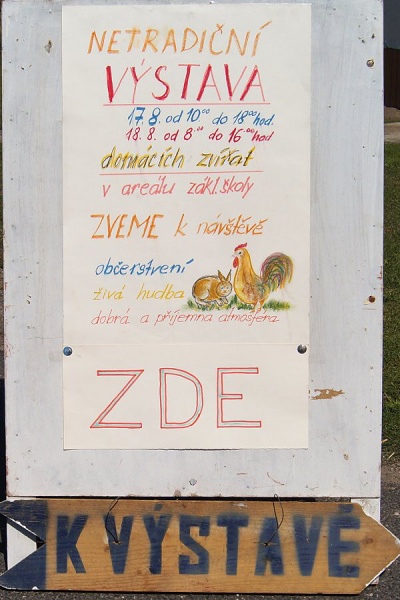 NETRADIČNÍ
VÝSTAVA
17.8. od 10⁰⁰ do 18⁰⁰ hod.
18.8. od 8⁰⁰ do 16⁰⁰ hod
domácích zvířat
v areálu zákl. školy
ZVEME k návštěvě
občerstvení
živá hudba
dobrá a příjemna atmosféra
ZDE
K VÝSTAVĚ